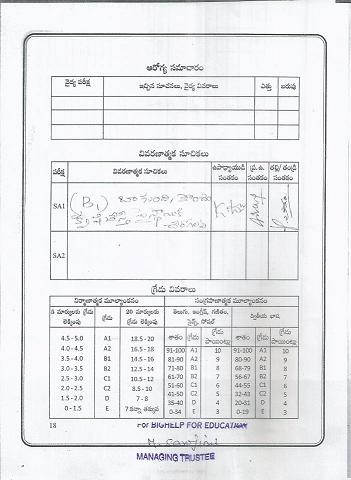 ఆరోగ్య సమాచారం
వైద్య పరీక్ష ఇచ్చిన సూచనలు, వైద్య వివరాలు ఎత్తు బరువు
వివరణాత్మక సూచికలు
పరీక్ష వివరణాత్మక సూచికలు ఉపాధ్యాయుడి సంతకం ప్ర. ఉ. సంతకం తల్లి/ తండ్రి సంతకం
SA1 (B1)
SA2
గ్రేడు వివరాలు
నిర్మాణాత్మక మూల్యాంకనం సంగ్రహణాత్మక మూల్యాంకనం
5 మార్కులకు లెక్కింపు గ్రేడు 20 మార్కులకు లెక్కింపు తెలుగు, ఇంగ్లీష్, గణితం, సైన్స్, సోషల్ ద్వితీయ భాష
శాతం గ్రేడు గ్రేడు పాయింట్లు శాతం గ్రేడు గ్రేడు పాయింట్లు
4.5 - 5.0 A1 18.5 - 20 91-100 A1 10 91-100 A1 10
4.0 - 4.5 A2 16.5 - 18 81-90 A2 9 80-90 A2 9
3.5 - 4.0 B1 14.5 - 16 71-80 B1 8 68-79 B1 8
3.0 - 3.5 B2 12.5 - 14 61-70 B2 7 56-67 B2 7
2.5 - 3.0 C1 10.5 - 12 51-60 C1 6 44-55 C1 6
2.0 - 2.5 C2 8.5 - 10 41-50 C2 5 32-43 C2 5
1.5 - 2.0 D 7 - 8 35-40 D 4 20-31 D 4
0 - 1.5 E 7 కన్నా తక్కువ 0-34 E 3 0-19 E 3
18 For BIGHELP FOR EDUCATION
MANAGING TRUSTEE